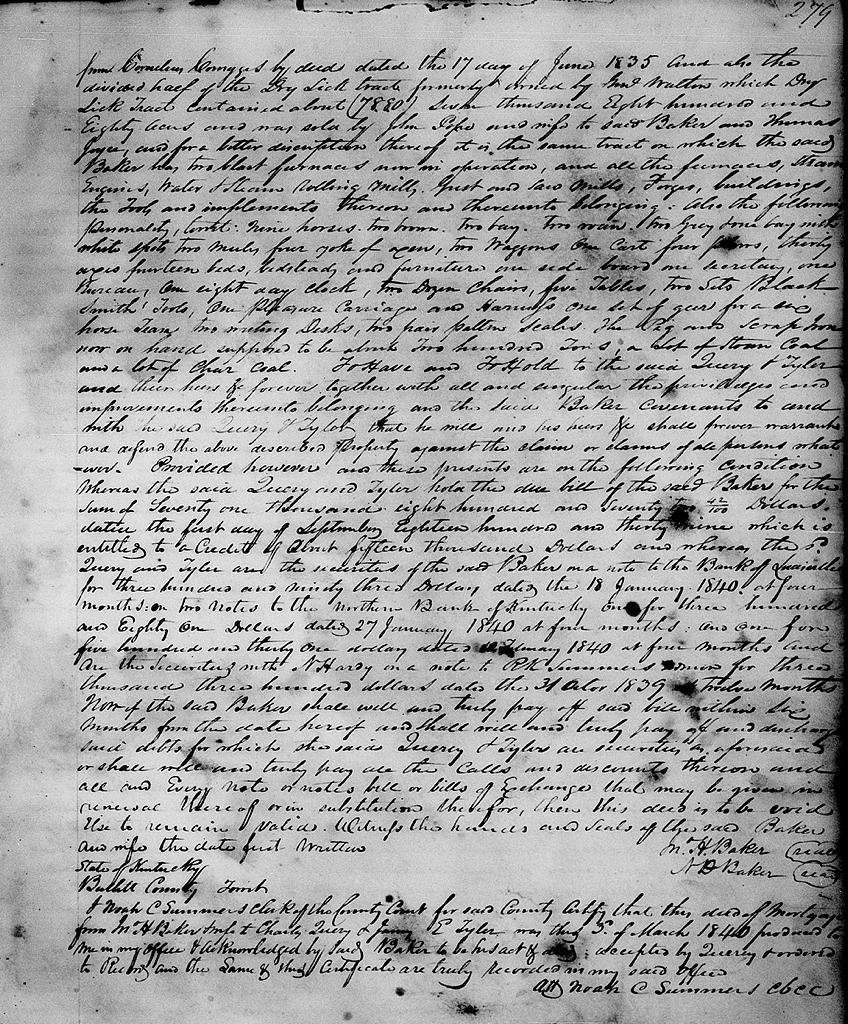 279
from Cornelius Comygys by deed dated the 17 day of June 1835 and also the
divided half of the Dry Lick tract formerly owned by Genl Walton which Dry
Lick Tract contained about (7880) Seven thousand Eight hundred and
Eighty acres and was sold by John Pope and wife to said Baker and Thomas
Joyce, and for a better discription thereof it is the same tract on which the said
Baker has two blast furnaces now in operation, and all the furnaces, Steam
Engines, Water & Steam Rolling Mills, Grist and Saw Mills, Forges, buildings,
the Tools and implements thereon and thereunto belonging: Also the following
personality, towit: Nine horses. two brown. two bay. two roan. two Grey & one bay with
white spots two mules, four yoke of oxen, two Waggons One Cart four plows,
axes fourteen beds, bedsteads and furniture one side board one secretary, one
Bureau, One eight day clock, two Dozen Chairs, five Tables, two Sets Black-
Smiths' Tools, One Pleasure Carriage and Harness one set of geer for a six
horse Team two writing Desks, two pair patten Scales. The Pig and Scrap Iron
now on hand supposed to be about Two hundred Tons, a Lot of Stone Coal
and a lot of Char Coal. To Have and To Hold to the said Query & Tyler
and their heirs &c forever together with all and singular the priviledges and
improvements thereunto belonging and the said Baker covenants to and
with the said Query & Tyler that he will and his heirs &c shall forever warrant
and defend the above described property against the claim or claims of all persons what
-ever. Provided however and these presents are on the following condition
Whereas the said Query and Tyler hold the due bill of the said Baker for the
Sum of Seventy one thousand eight hundred and seventy two 42/100 Dollars.
dated the first day of September Eighteen hundred and thirty nine which is
entitled to a Credit of about fifteen thousand Dollars and whereas the sd.
Query and Tyler are the securities of the said Baker on a note to the Bank of Louisville
for three hundred and ninety three Dollars dated the 18 January 1840. at four
months: on two notes to the Northern Bank of Kentucky one for three hundred
and Eighty One Dollars dated 27 January 1840 at four months: and one for
five hundred and thirty one dollars dated February 1840 at four months and
are the Securities with N Hardy on a note to R K Summers for three
thousand three hundred dollars dated the 31 Octor 1839 at twelve months
Now if the said Baker shall well and truly pay off said bill within six
months from the date hereof and shall well and truly pay off and discharge
said debts for which the said Query & Tyler are securities as aforesaid
or shall well and truly pay all the Calls and discounts thereon and
all and Every note or notes bill or bills of Exchange that may be given in
renewal thereof or in substitution therefor, then this deed is to be void
Else to remain valid. Witness the hands and Seals of the said Baker
and wife the date first written
Wm H Baker (seal)
N D Baker (seal)
State of Kentucky
Bullitt County Towit
I Noah C Summers clerk of the County Court for said County Certify that this deed of Mortgage
from Wm H Baker & wife to Charles Query & E Tyler was this 5. of March 1840 produced to
me in my office & acknowledged by said Baker to be his act & deed: accepted by Query & ordered
to Record and the Same & this Certificate are truly recorded in my said office
Att Noah C Summers cbcc